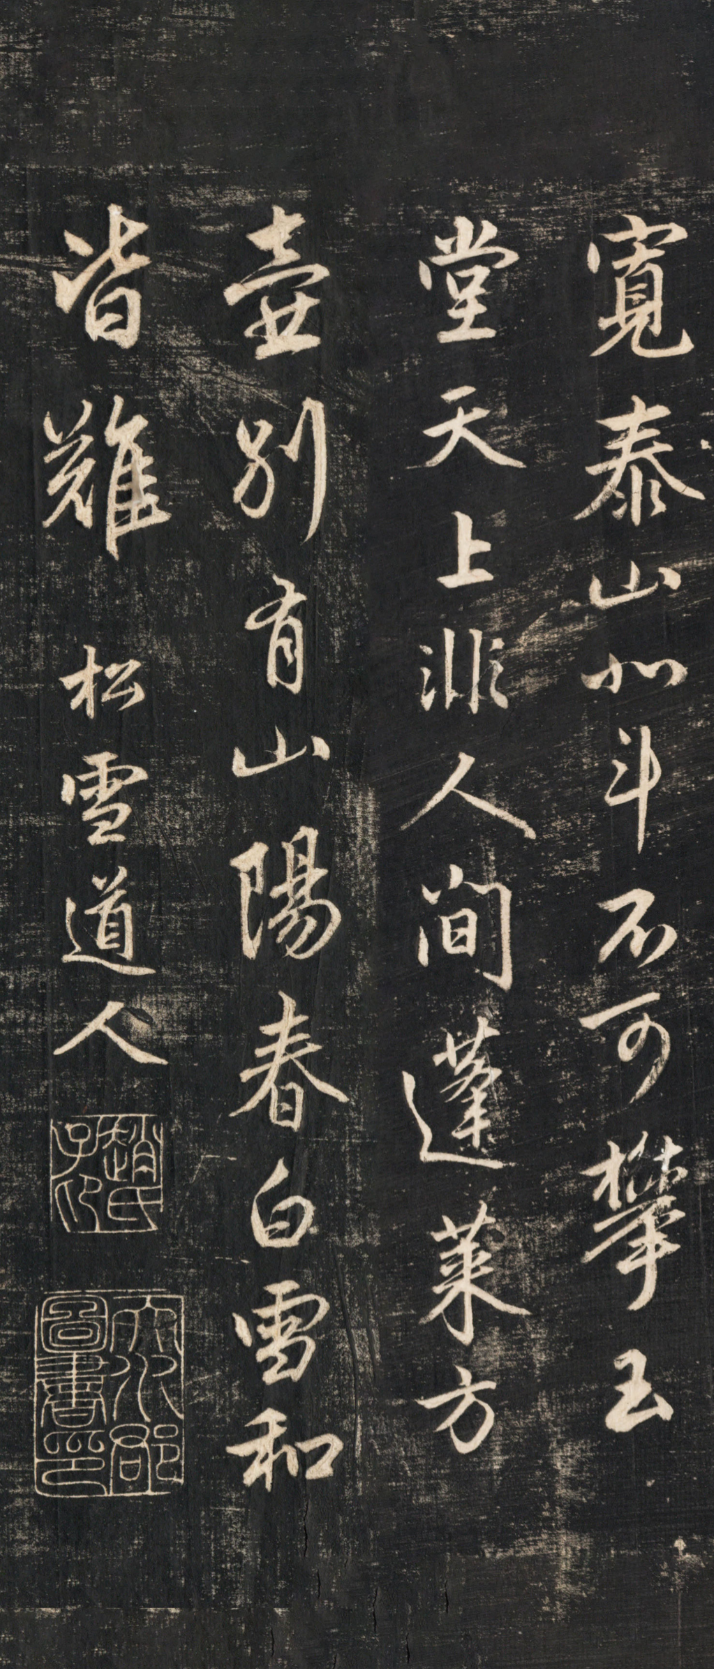 寬泰山北斗不可攀玉
堂天上非人間蓬萊方
壺別有山陽春白雪和
皆難
松雪道人
趙氏子印
大水郡圖書印